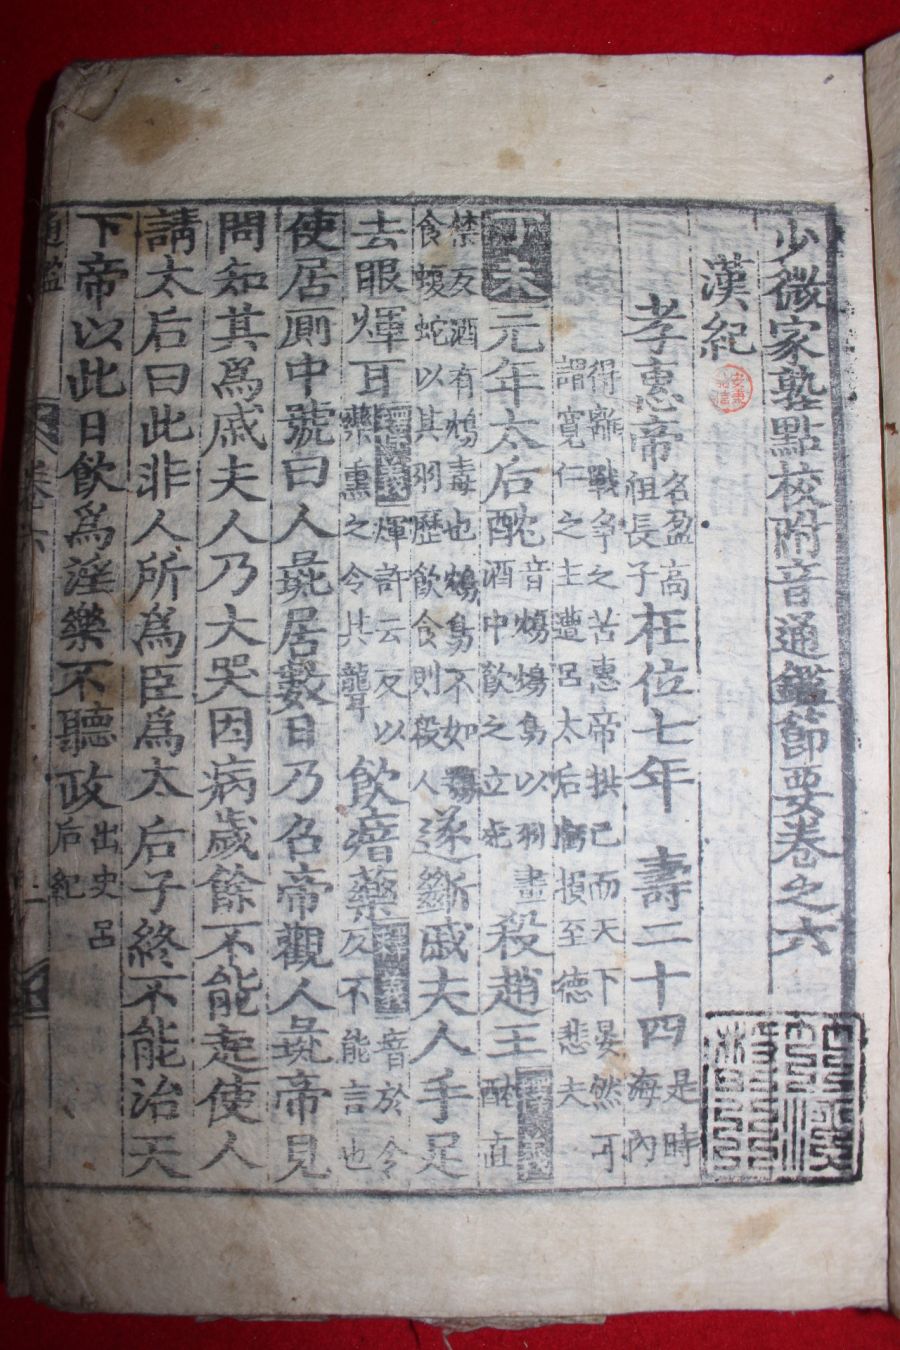 少微家塾點校附音通鑑節要卷之六
漢紀
孝惠帝名盈高祖長子在位七年 壽二十四是時海內
得離戰爭之苦惠帝拱己而天下晏然可
謂寬仁之主遭呂太后虧損至德悲夫
丁未元年太后酖音鴆鴆鳥以羽畫酒中飮之立死殺趙王酖直
禁反酒有鴆毒也鴆鳥不如食蝮蛇以其羽歷飮食則殺人遂斷戚夫人手足
去眼煇耳煇許云反以藥熏之令其聾飮瘖藥音於今反不能言也
使居厠中號曰人彘居數日乃召帝觀人彘帝見
問知其爲戚夫人乃大哭因病歲餘不能起使人
請太后曰此非人所爲臣爲太后子終不能治天
下帝以此日飮爲淫樂不聽政出史呂后紀
通鑑 卷六